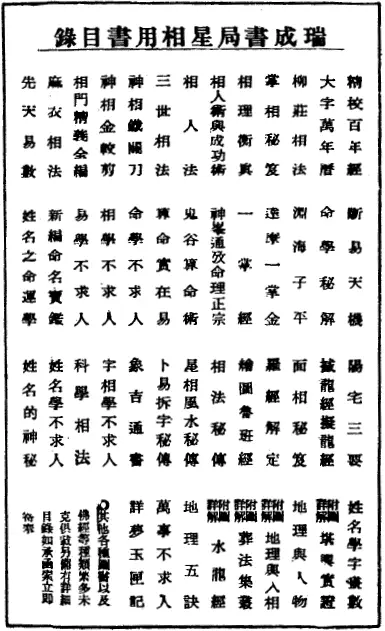 瑞成書局星相用書目錄
精校百年經
大字萬年曆
柳莊相法
掌相秘笈
相理衡真
相人術與成功術
相人法
三世相法
神相鐵關刀
神相金較剪
相門精義全編
麻衣相法
先天易數
斷易天機
命學秘解
淵海子平
達摩一掌金
一掌經
神峯通攷命理正宗
鬼谷算命術
算命實在易
命學不求人
相學不求人
易學不求人
新編命名寶鑑
姓名之命運學
陽宅三要
撼龍經疑龍經
面相秘笈
羅經解定
繪圖魯班經
相法秘傳
屋相風水秘傳
卜易拆字秘傳
象吉通書
字相學不求人
科學相法
姓名學不求人
姓名的神秘
姓名學字畫數
附圖詳解堪輿實證
地理與人物
附圖詳解地理與人相
附圖詳解葬法集叢
附圖詳解水龍經
地理五訣
萬事不求人
詳夢玉匣記
◎其他各種圖書以及
佛經等種類繁多未
克俱載另備有詳細
目錄如承函索立即